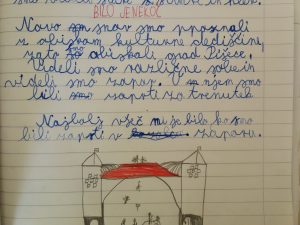 BILO JE NEKOČ
Novo snov smo spoznali
z obiskom kulturne dediščine,
zato smo obiskali grad Pišece.
Videli smo različne sobe in
videli smo zapor. V njem smo
bili zaprti za trenutek.
Najbolj všeč mi je bilo ko smo
bili zaprti v zaporu.